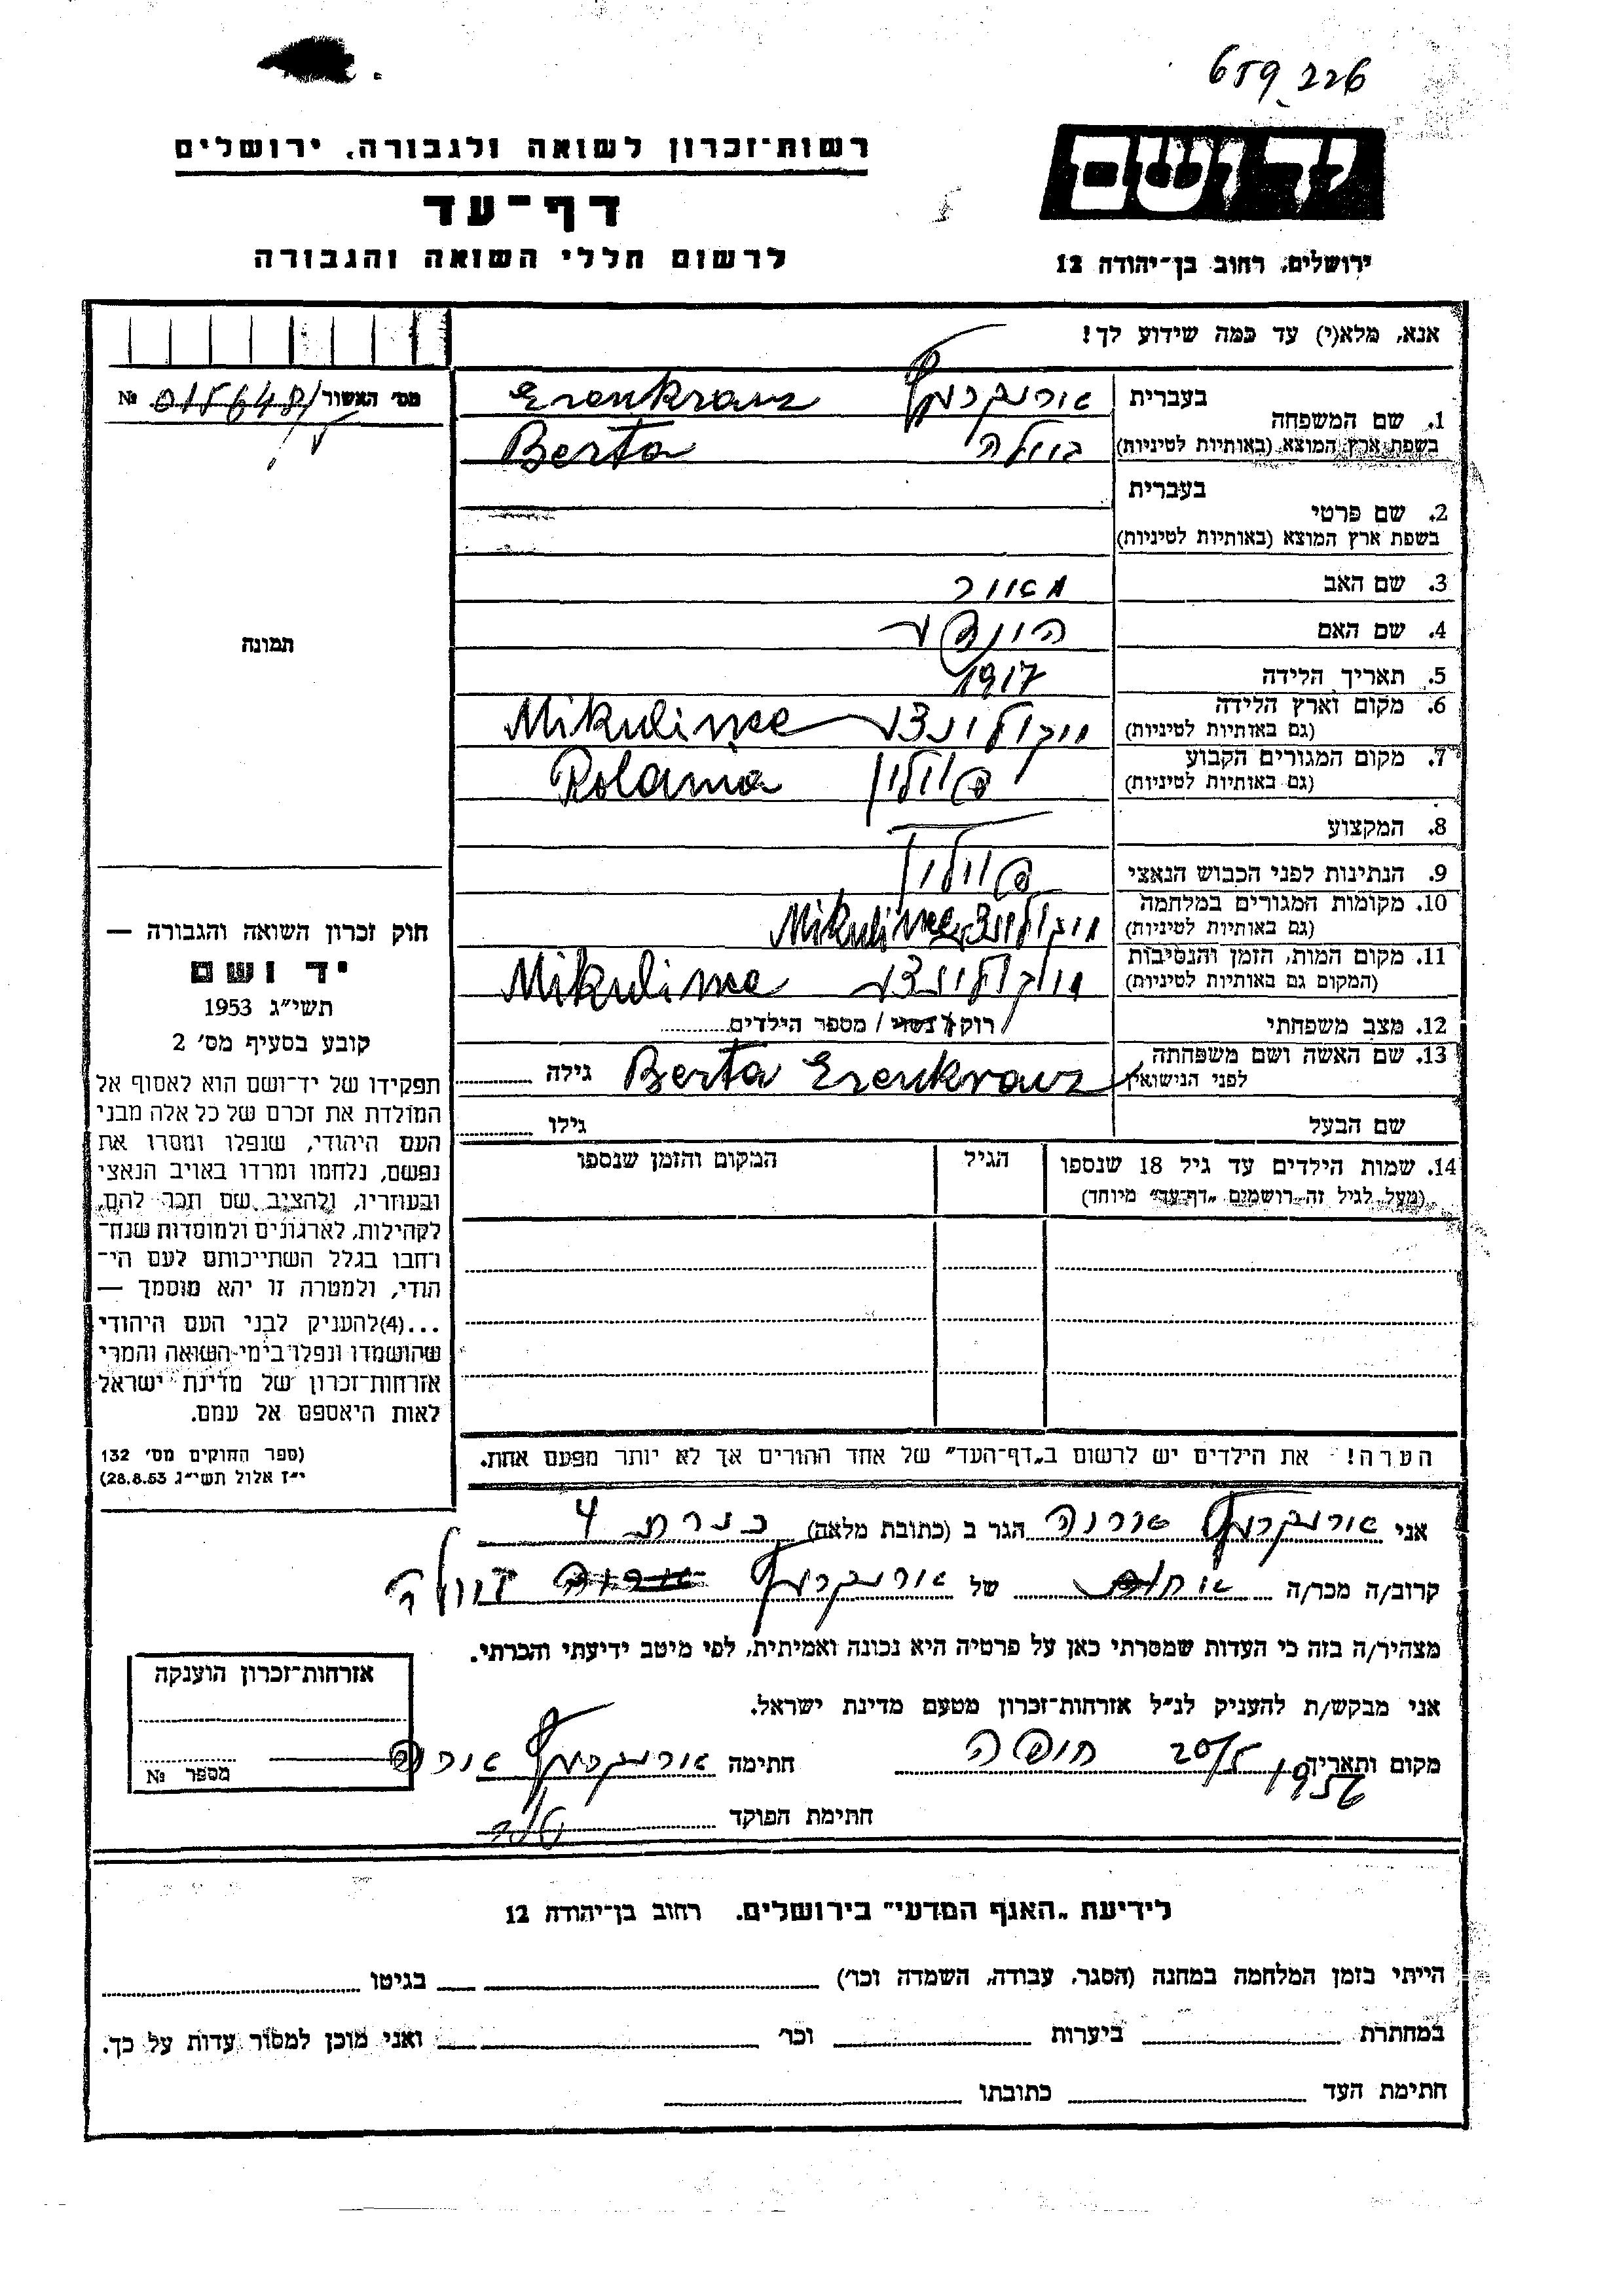 659226
רשות־זכרון לשואה ולגבורה, ירושלים
דף־עד
לרשום חללי השואה והגבורה
יד ושם
ירושלים, רחוב בן־יהודה 12
אנא, מלא(י) עד כמה שידוע לך!
מס׳ האשור 015648 №
1. שם המשפחה
בעברית
בשפת ארץ המוצא (באותיות לטיניות)
Erenkranz
Berta
2. שם פרטי
בעברית
בשפת ארץ המוצא (באותיות לטיניות)
3. שם האב מאיר
4. שם האם
5. תאריך הלידה 1917
6. מקום וארץ הלידה
(גם באותיות לטיניות)
Mikulince
7. מקום המגורים הקבוע
(גם באותיות לטיניות)
פולין Polania
8. המקצוע
9. הנתינות לפני הכבוש הנאצי פולין
10. מקומות המגורים במלחמה
(גם באותיות לטיניות)
Mikulince
11. מקום המות, הזמן והנסיבות
(המקום גם באותיות לטיניות)
Mikulince
12. מצב משפחתי רוק/נשוי / מספר הילדים
13. שם האשה ושם משפחתה
לפני הנישואין
Berta Erenkranz גילה
שם הבעל גילו
14. שמות הילדים עד גיל 18 שנספו
(מעל לגיל זה רושמים „דף־עד״ מיוחד)
הגיל
המקום והזמן שנספו
תמונה
חוק זכרון השואה והגבורה —
יד ושם
תשי״ג 1953
קובע בסעיף מס׳ 2
תפקידו של יד־ושם הוא לאסוף אל
המולדת את זכרם של כל אלה מבני
העם היהודי, שנפלו ומסרו את
נפשם, נלחמו ומרדו באויב הנאצי
ובעוזריו, ולהציב שם וזכר להם,
לקהילות, לארגונים ולמוסדות שנח־
רחבו בגלל השתייכותם לעם הי־
הודי, ולמטרה זו יהא מוסמך —
...(4)להעניק לבני העם היהודי
שהושמדו ונפלו בימי השואה והמרי
אזרחות־זכרון של מדינת ישראל
לאות היאספם אל עמם.
(ספר החוקים מס׳ 132
י״ז אלול תשי״ג 28.8.53)
הערה! את הילדים יש לרשום ב„דף־העד״ של אחד ההורים אך לא יותר מפעם אחת.
אני הגר ב (כתובת מלאה) כנרת 4
קרוב/ה מכר/ה של
מצהיר/ה בזה כי העדות שמסרתי כאן על פרטיה היא נכונה ואמיתית, לפי מיטב ידיעתי והכרתי.
אני מבקש/ת להעניק לנ״ל אזרחות־זכרון מטעם מדינת ישראל.
מקום ותאריך 20/5 1956 חיפה חתימה
חתימת הפוקד
אזרחות־זכרון הוענקה
מספר №
לידיעת „האגף המדעי״ בירושלים. רחוב בן־יהודה 12
הייתי בזמן המלחמה במחנה (הסגר, עבודה, השמדה וכו׳) בגיטו
במחתרת ביערות וכו׳ ואני מוכן למסור עדות על כך.
חתימת העד כתובתו